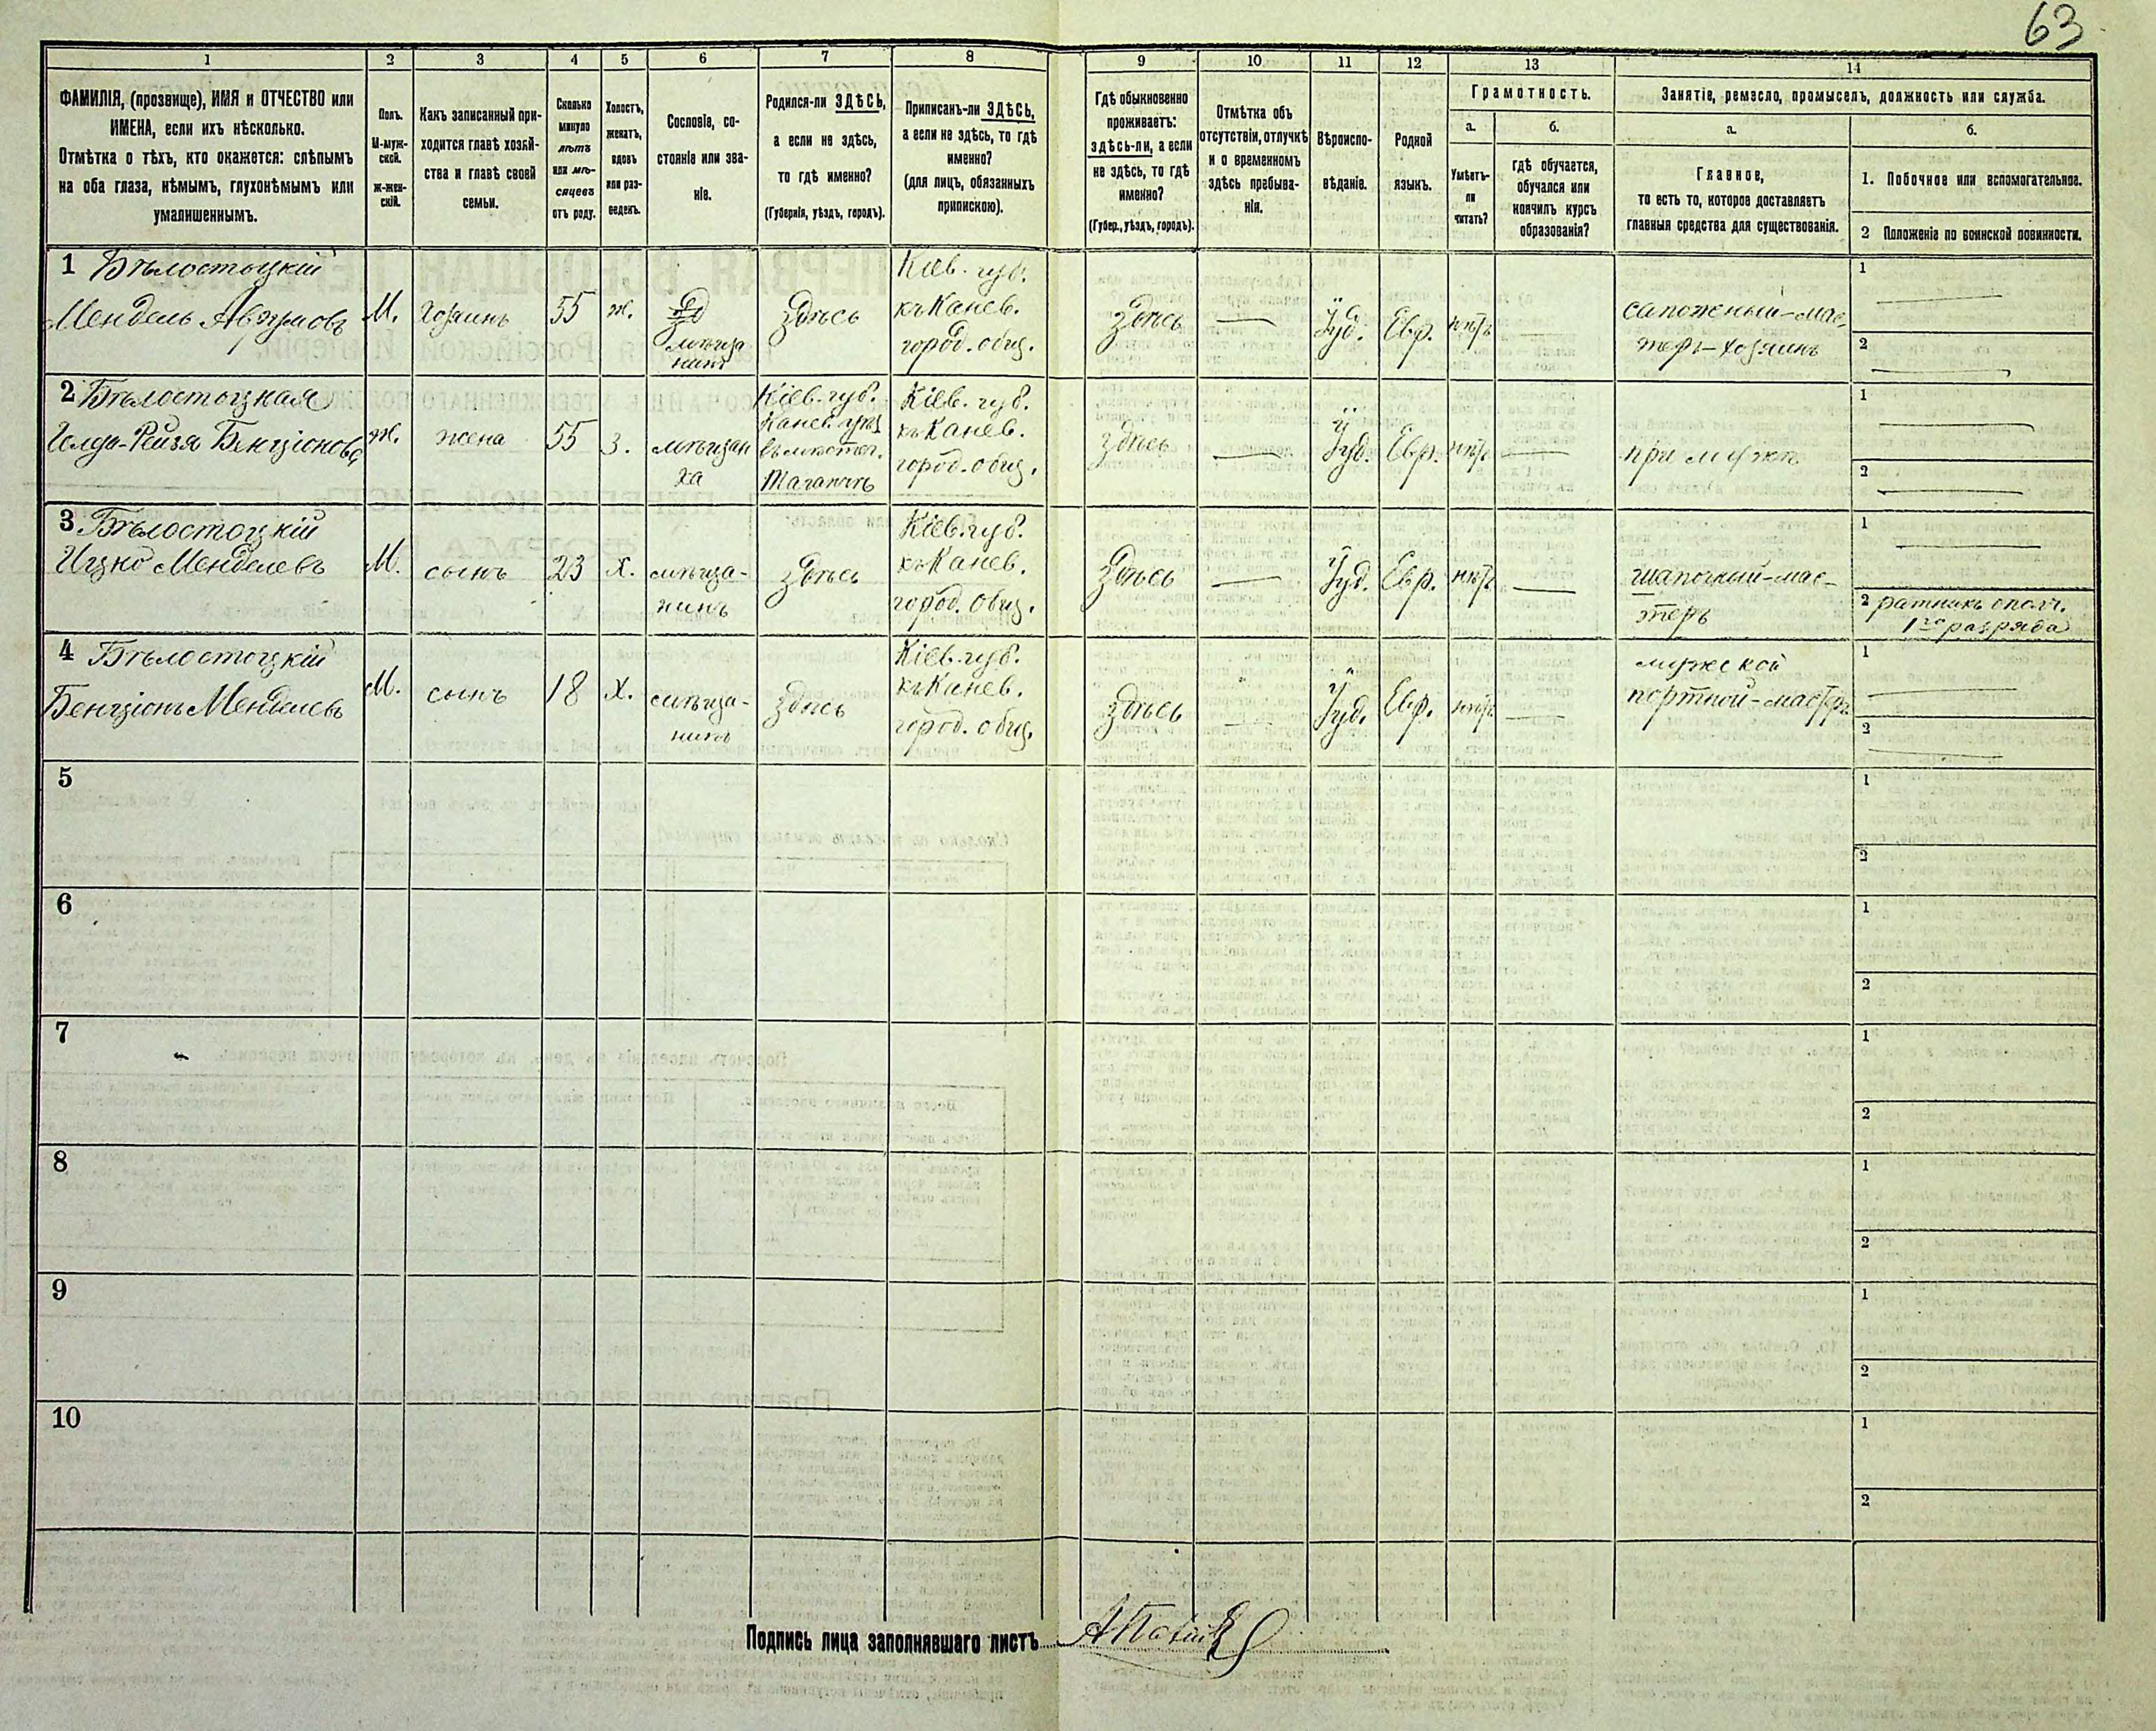 63
1
2
3
4
5
6
7
8
9
10
11
12
13
14
ФАМИЛІЯ, (прозвище), ИМЯ и ОТЧЕСТВО или
ИМЕНА, если ихъ нѣсколько.
Отмѣтка о тѣхъ, кто окажется: слѣпымъ
на оба глаза, нѣмымъ, глухонѣмымъ или
умалишеннымъ.
Полъ.
М-муж-
ской.
Ж-жен-
скій.
Какъ записанный при-
ходится главѣ хозяй-
ства и главѣ своей
семьи.
Сколько
минуло
лѣтъ
или мѣ-
сяцевъ
отъ роду.
Холостъ,
женатъ,
вдовъ
или раз-
веденъ.
Сословіе, со-
стояніе или зва-
ніе.
Родился-ли ЗДѢСЬ,
а если не здѣсь,
то гдѣ именно?
(Губернія, уѣздъ, городъ).
Приписанъ-ли ЗДѢСЬ,
а если не здѣсь, то гдѣ
именно?
(для лицъ, обязанныхъ
припискою).
Гдѣ обыкновенно
проживаетъ:
здѣсь-ли, а если
не здѣсь, то гдѣ
именно?
(Губер., уѣздъ, городъ).
Отмѣтка объ
отсутствіи, отлучкѣ
и о временномъ
здѣсь пребыва-
ніи.
Вѣроиспо-
вѣданіе.
Родной
языкъ.
Грамотность.
а.
Умѣетъ-
ли
читать?
б.
гдѣ обучается,
обучался или
кончилъ курсъ
образованія?
Занятіе, ремесло, промыселъ, должность или служба.
а.
Главное,
то есть то, которое доставляетъ
главныя средства для существованія.
б.
1. Побочное или вспомогательное.
2 Положеніе по воинской повинности.
1 Бѣлостоцкій
Мендель Аврумовъ
М.
хозяинъ
55
ж.
мѣща
нинъ
Здѣсь
Кіев. губ.
къ Канев.
город. общ.
Здѣсь
Іуд.
Евр.
нѣтъ
сапожный-мас-
теръ-хозяинъ
1
2
2 Бѣлостоцкая
Гелда-Рейзя Бенціонова
ж.
жена
55
З.
мѣщан
ха
Кіев. губ.
Канев. уѣз
въ мѣстеч.
Таганчѣ
Кіев. губ.
къ Канев.
город. общ.
здѣсь
Іуд.
Евр.
нѣтъ
при мужѣ
1
2
3 Бѣлостоцкій
Ицко Менделевъ
М.
сынъ
23
Х.
мѣща-
нинъ
здѣсь
Кіев. губ.
къ Канев.
город. общ.
Здѣсь
Іуд.
Евр.
нѣтъ
шапочный-мас-
теръ
1
2 ратникъ ополч.
1го разряда
4 Бѣлостоцкій
Бенціонъ Менделевъ
М.
сынъ
18
Х.
мѣща-
нинъ
здѣсь
Кіев. губ.
къ Канев.
город. общ.
здѣсь
Іуд.
Евр.
нѣтъ
мужской
портной-мастеръ
1
2
5
1
2
6
1
2
7
1
2
8
1
2
9
1
2
10
1
2
Подпись лица заполнявшаго листъ